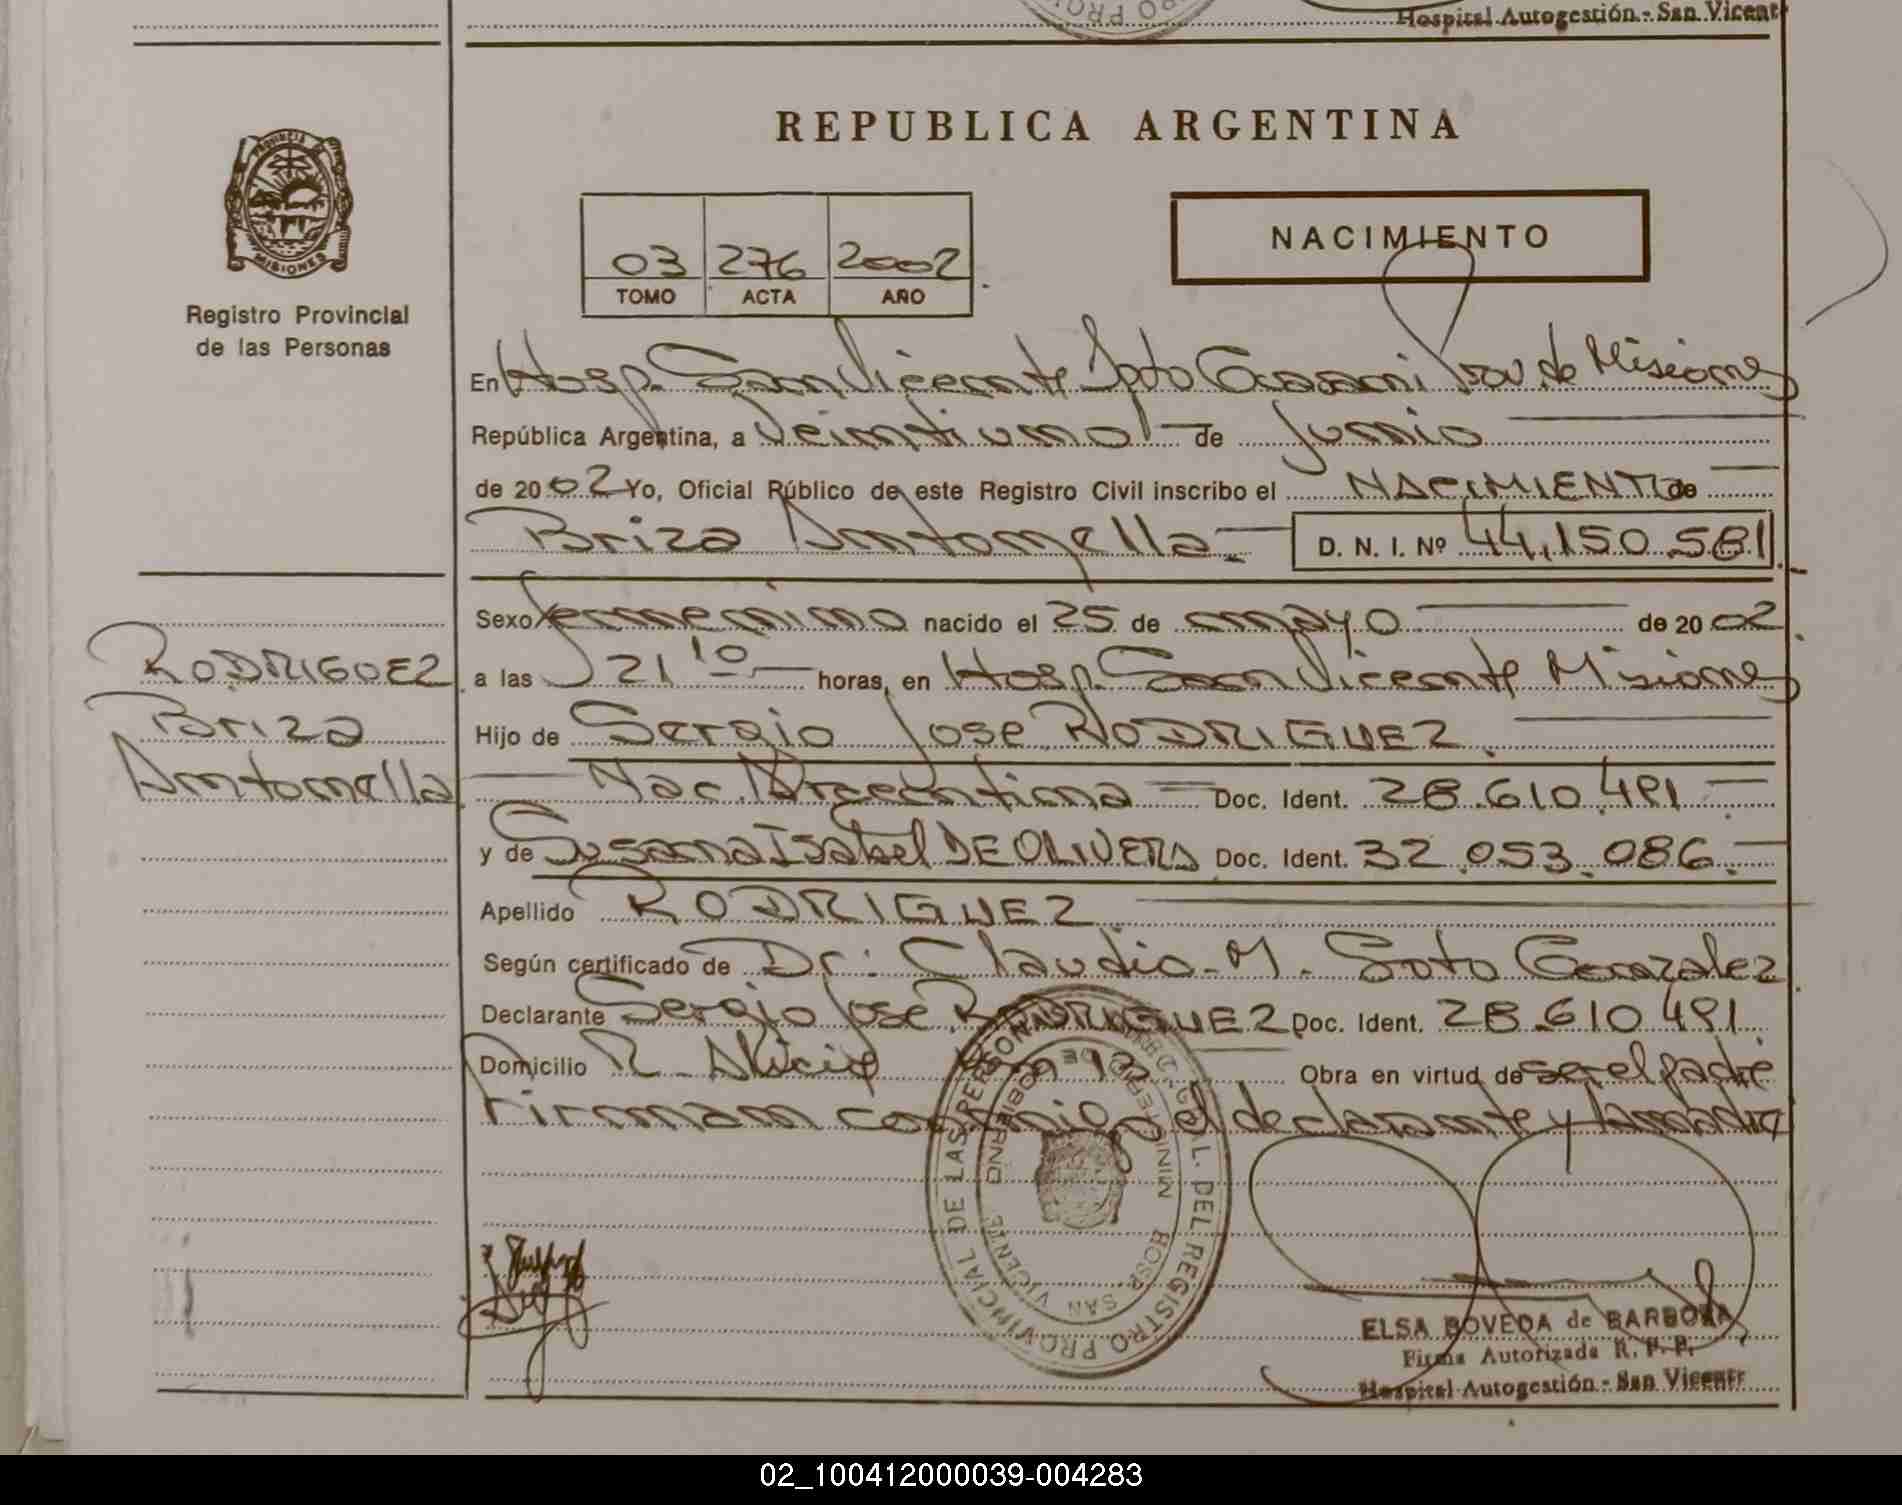 Hospital Autogestión - San Vicente
PROVINCIA DE
MISIONES
Registro Provincial
de las Personas
RODRIGUEZ
Briza
Antonella
REPUBLICA ARGENTINA
03 276 2002
TOMO ACTA AÑO
NACIMIENTO
En Hosp. San Vicente Dpto Guarani Prov de Misiones
República Argentina, a Veintiuno de Junio
de 2002 Yo, Oficial Público de este Registro Civil inscribo el NACIMIENTO de
Briza Antonella D. N. I. Nº 44.150.581
Sexo femenino nacido el 25 de mayo de 2002
a las 21 10 horas, en Hosp. San Vicente Misiones
Hijo de Sergio Jose RODRIGUEZ
Nac. Argentina Doc. Ident. 28.610.491
y de Susana Isabel DE OLIVERA Doc. Ident. 32.053.086
Apellido RODRIGUEZ
Según certificado de Dr: Claudio M. Soto Gonzalez
Declarante Sergio Jose RODRIGUEZ Doc. Ident. 28.610.491
Domicilio R. Alicia Km 13 Obra en virtud de ser el padre
Firman conmigo el declarante y la madre
REGISTRO PROVINCIAL DE LAS PERSONAS
MINISTERIO DE GOBIERNO
HOSP. SAN VICENTE
ELSA BOVEDA de BARBOZA
Firma Autorizada R. P. P.
Hospital Autogestión - San Vicente
02_100412000039-004283